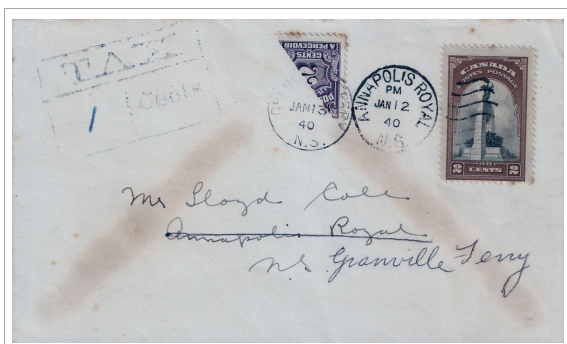 TAX
CENTS
A PERCEVOIR
2
JAN 13
40
N.S.
ANNAPOLIS ROYAL
PM
JAN 12
40
N.S.
CANADA
POSTES POSTAGE
1939
2 CENTS 2
1
Mr Lloyd Cole
Annapolis Royal
N.S. Granville Ferry